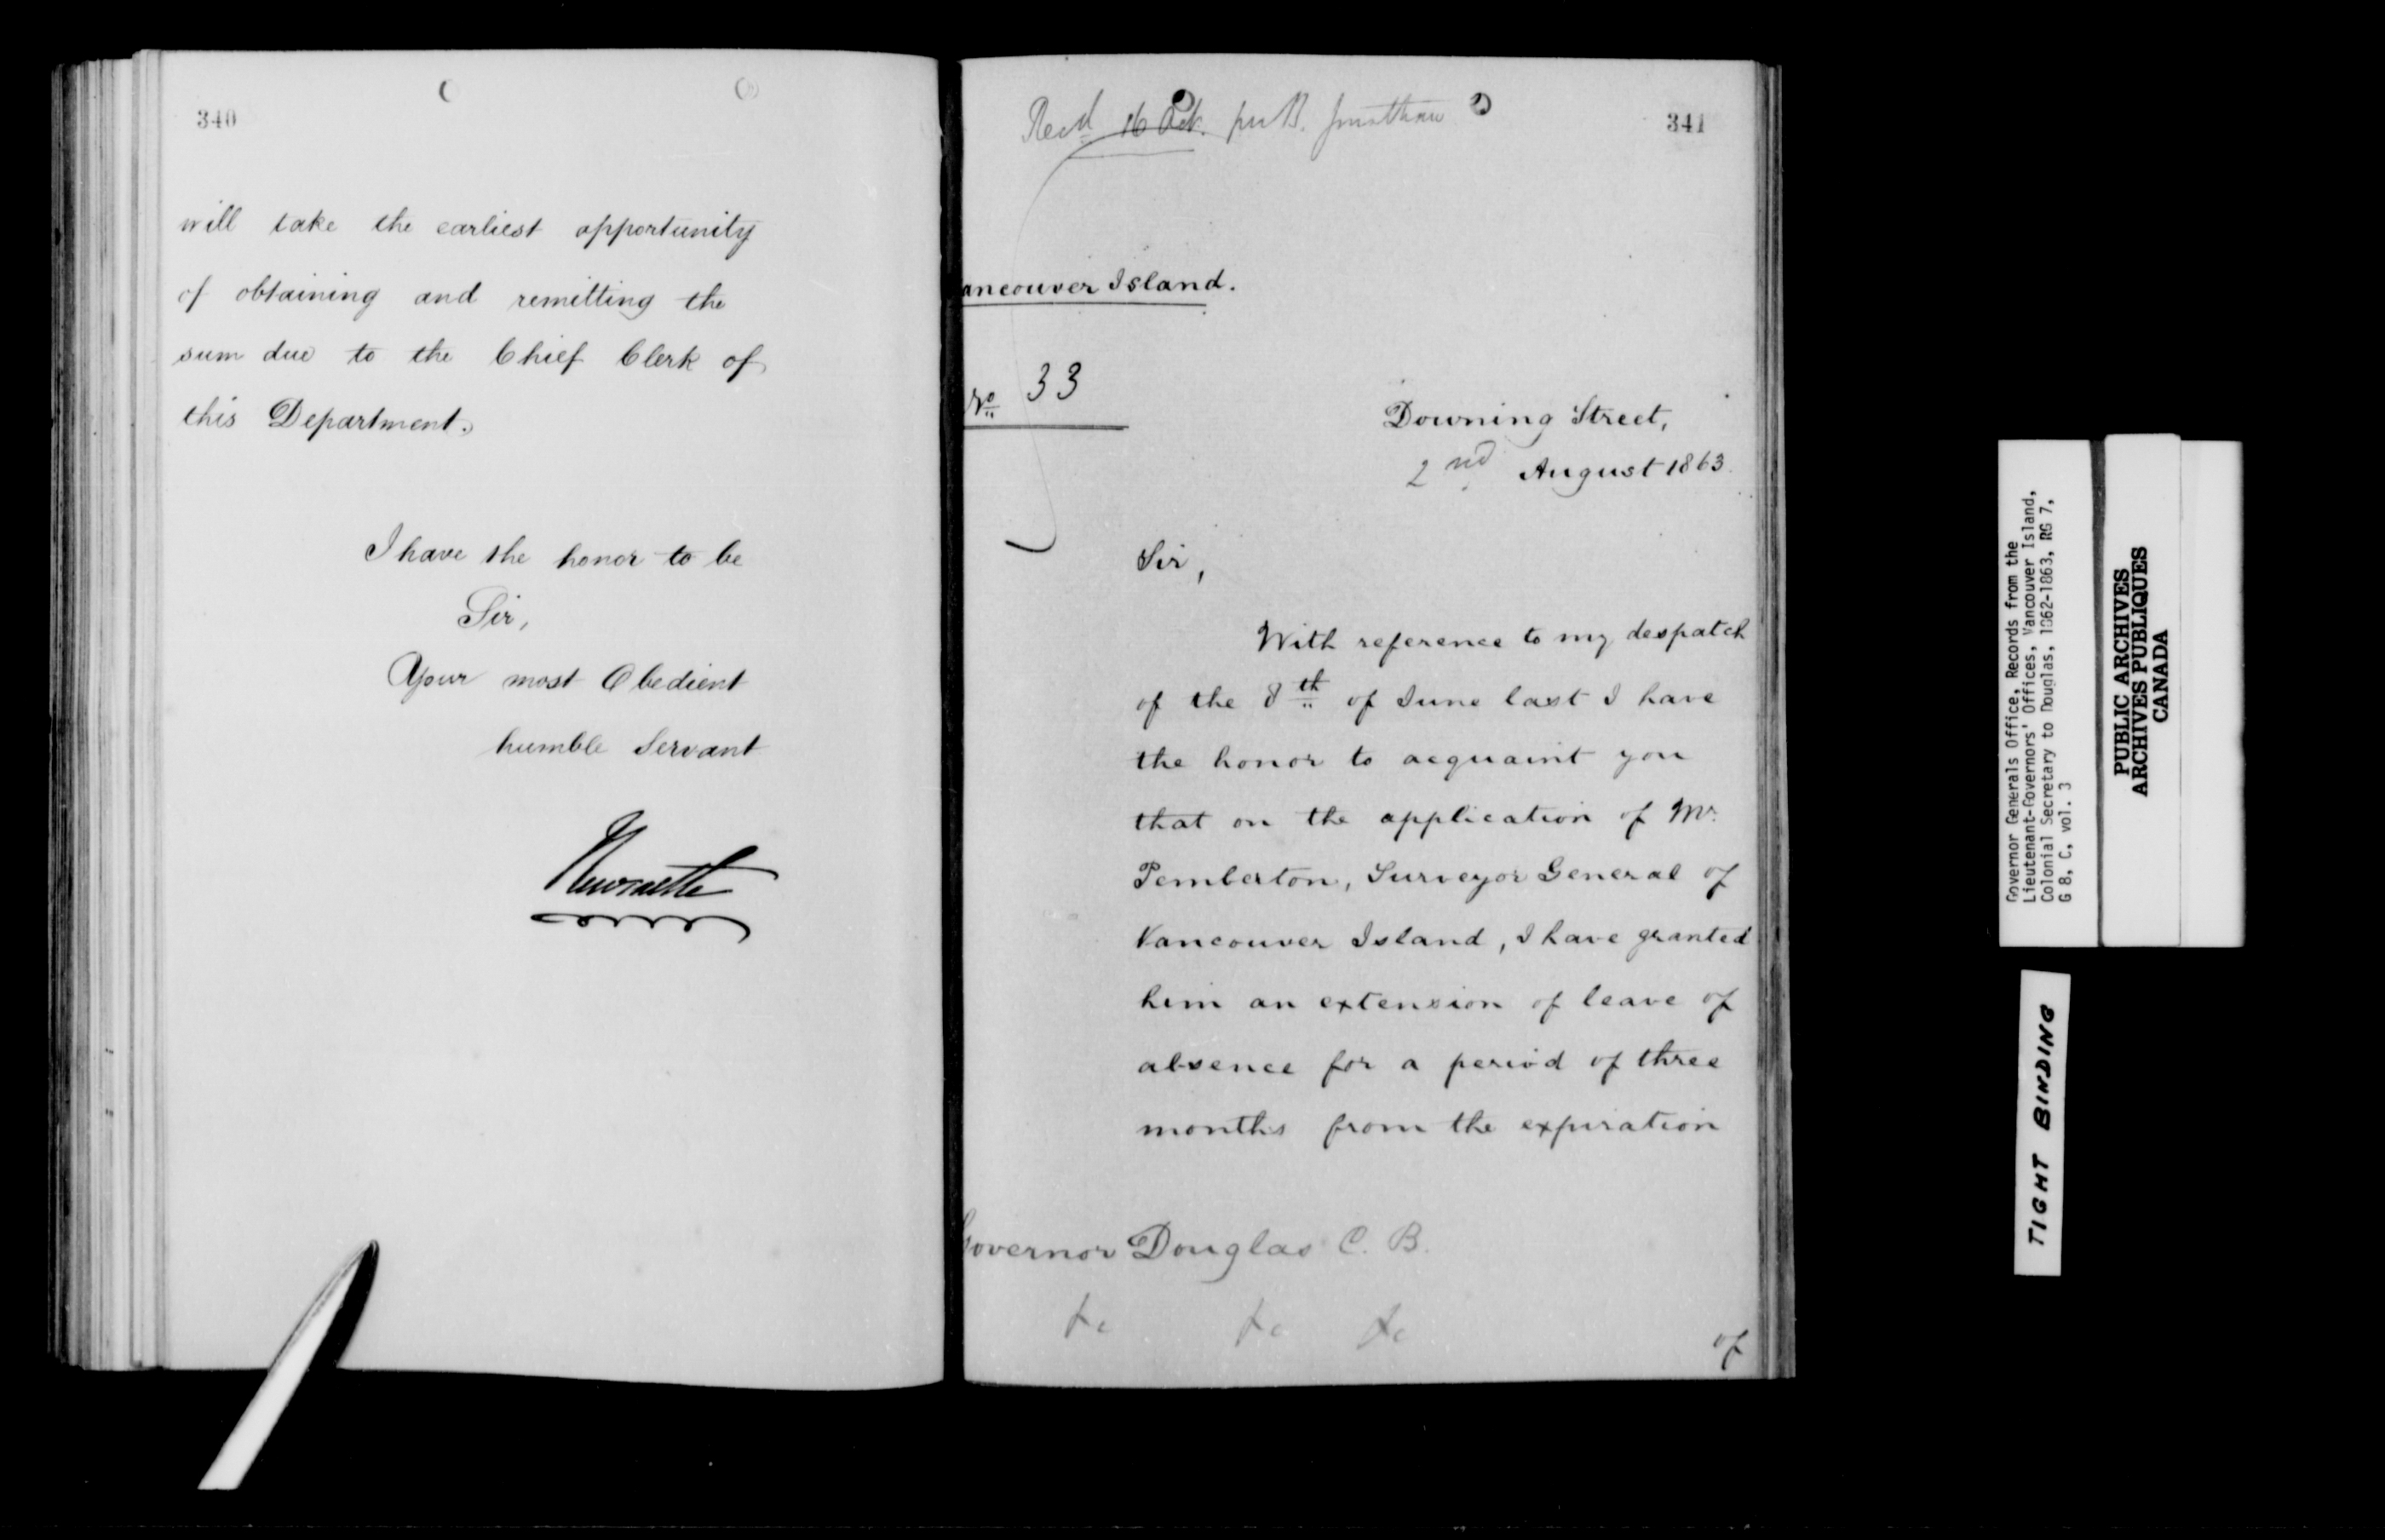 340
will take the earliest opportunity
of obtaining and remitting the
sum due to the Chief Clerk of
this Department.
I have the honor to be
Sir,
Your most Obedient
humble Servant
Newcastle
Recd 16 Oct. pr B. Jonathan
341
ancouver Island.
No 33
Downing Street,
2nd August 1863.
Sir,
With reference to my despatch
of the 8th of June last I have
the honor to acquaint you
that on the application of Mr.
Pemberton, Surveyor General of
Vancouver Island, I have granted
him an extension of leave of
absence for a period of three
months from the expiration
Governor Douglas C. B.
&c &c &c
of
Governor Generals Office, Records from the
Lieutenant-Governors' Offices, Vancouver Island,
Colonial Secretary to Douglas, 1862-1863, RG 7,
G 8, C, vol. 3
PUBLIC ARCHIVES
ARCHIVES PUBLIQUES
CANADA
TIGHT BINDING